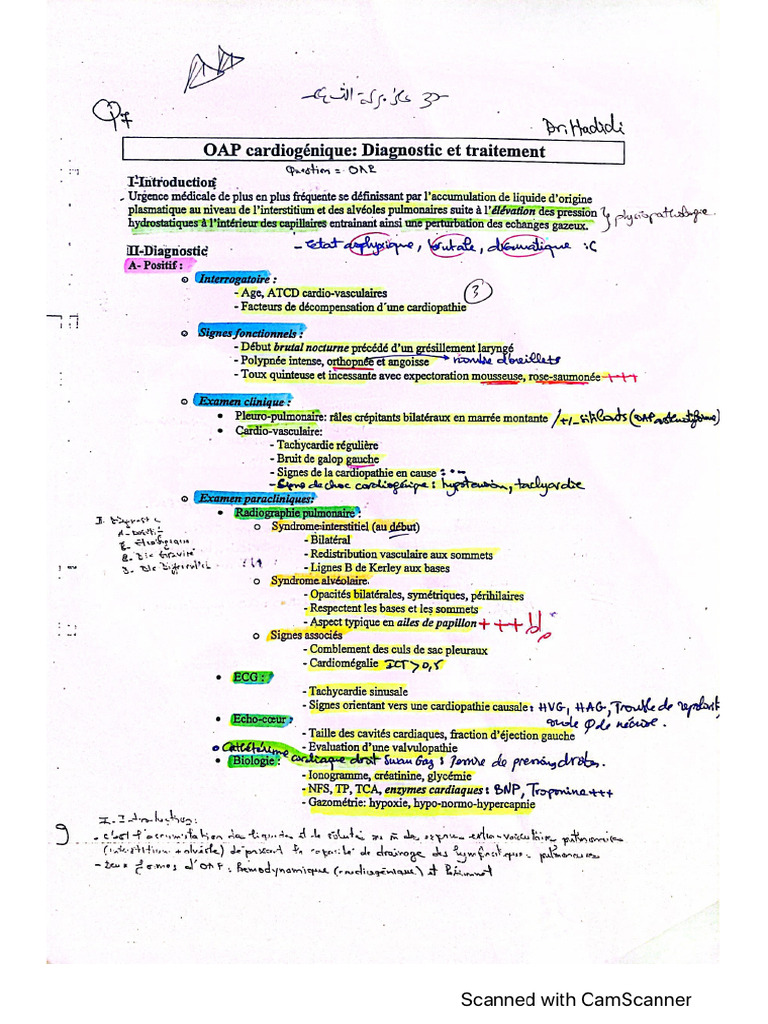 Q7
Dr. Hadidi
OAP cardiogénique: Diagnostic et traitement
Question = OAP
I-Introduction
Urgence médicale de plus en plus fréquente se définissant par l'accumulation de liquide d'origine
plasmatique au niveau de l'interstitium et des alvéoles pulmonaires suite à l'élévation des pression
hydrostatiques à l'intérieur des capillaires entrainant ainsi une perturbation des echanges gazeux.
physiopathologie
- état asphyxique, brutale, dramatique :(
II-Diagnostic
A- Positif :
Interrogatoire :
- Age, ATCD cardio-vasculaires
- Facteurs de décompensation d'une cardiopathie
3
Signes fonctionnels :
- Début brutal nocturne précédé d'un grésillement laryngé
- Polypnée intense, orthopnée et angoisse → nombre d'oreillets
- Toux quinteuse et incessante avec expectoration mousseuse, rose-saumonée +++
Examen clinique :
• Pleuro-pulmonaire: râles crépitants bilatéraux en marée montante /+/- sibilants (OAP asthmatiforme)
• Cardio-vasculaire:
- Tachycardie régulière
- Bruit de galop gauche
- Signes de la cardiopathie en cause : ...
- Signe de choc cardiogénique : hypotension, tachycardie
Examen paracliniques:
• Radiographie pulmonaire :
Syndrome interstitiel (au début)
- Bilatéral
- Redistribution vasculaire aux sommets
- Lignes B de Kerley aux bases
Syndrome alvéolaire
- Opacités bilatérales, symétriques, périhilaires
- Respectent les bases et les sommets
- Aspect typique en ailes de papillon +++
Signes associés
- Comblement des culs de sac pleuraux
- Cardiomégalie ICT > 0,5
• ECG :
- Tachycardie sinusale
- Signes orientant vers une cardiopathie causale : HVG, HAG, Trouble de repolarist,
onde Q de nécrose.
• Echo-cœur :
- Taille des cavités cardiaques, fraction d'éjection gauche
- Evaluation d'une valvulopathie
• Cathétérisme cardiaque droit Swan Gaz : prendre de pression droites.
• Biologie :
- Ionogramme, créatinine, glycémie
- NFS, TP, TCA, enzymes cardiaques : BNP, Troponine +++
- Gazométrie: hypoxie, hypo-normo-hypercapnie
II. Diagnostic
A- Positif
I. Introduction:
- c'est l'accumulation des liquides
pulmonaires
- deux formes d'OAP : hémodynamique (cardiogénique) et
Scanned with CamScanner